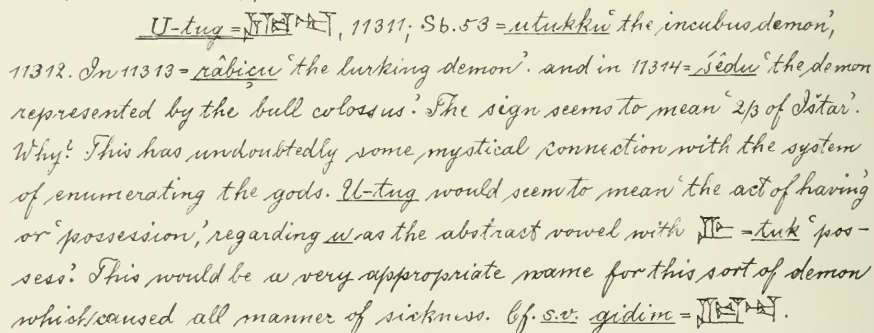 U-tug = , 11311; Sb. 53 = utukku ‘the incubus demon’,
11312. In 11313 = râbiçu ‘the lurking demon’. and in 11314 = šêdu ‘the demon
represented by the bull colossus’. The sign seems to mean ‘2/3 of Ištar’.
Why? This has undoubtedly some mystical connection with the system
of enumerating the gods. U-tug would seem to mean ‘the act of having’
or ‘possession’, regarding u as the abstract vowel with = tuk ‘pos-
sess’. This would be a very appropriate name for this sort of demon
which caused all manner of sickness. Cf. s.v. gidim = .